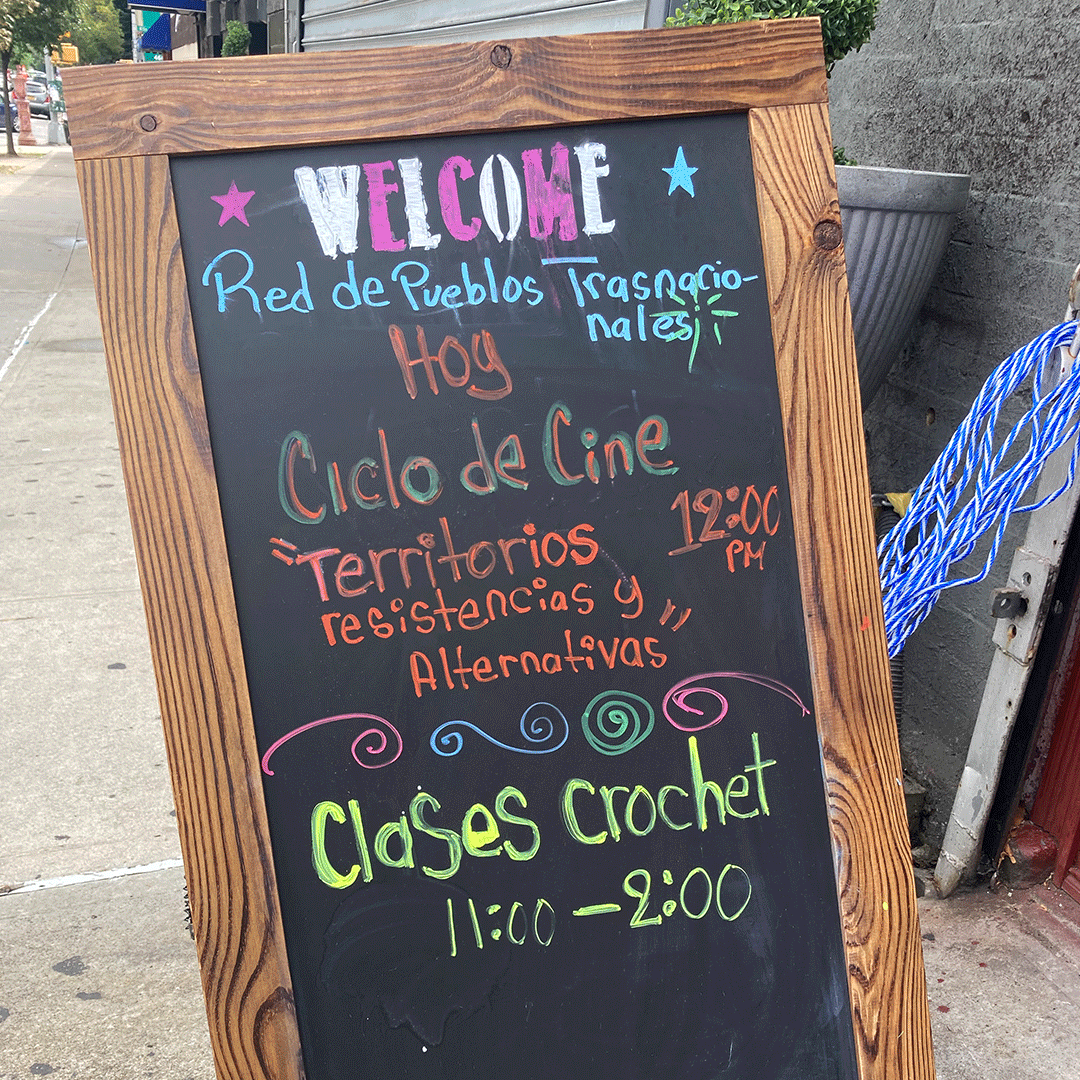 WELCOME
Red de Pueblos Trasnacio-
nales
Hoy
Ciclo de Cine
12:00
PM
"Territorios
resistencias y
Alternativas"
Clases Crochet
11:00 - 2:00